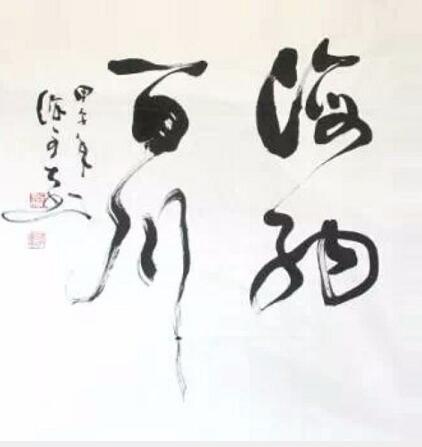 海纳
百川
甲午年